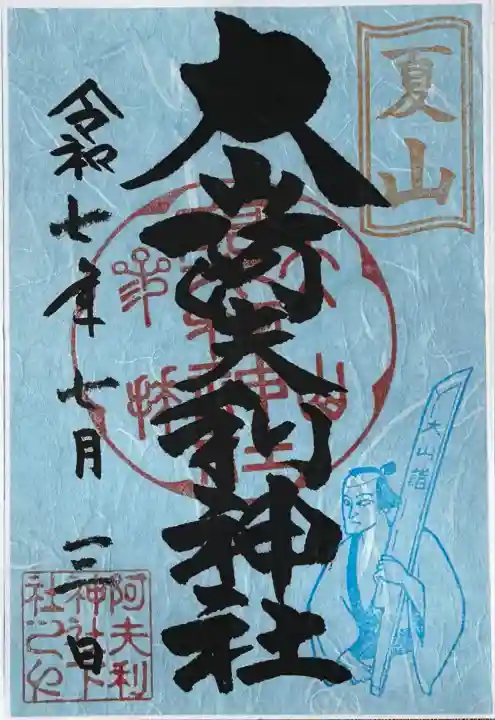 夏山
大山阿夫利神社
令和七年七月一三日
大山詣
阿夫利
神社下
社之印